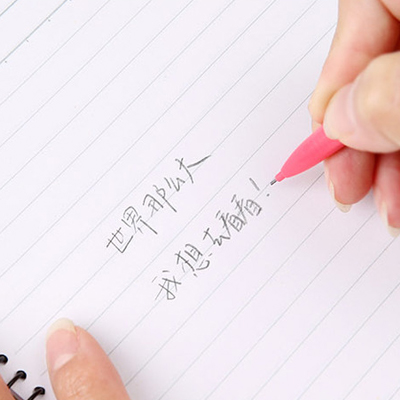 世界那么大
我想去看看!